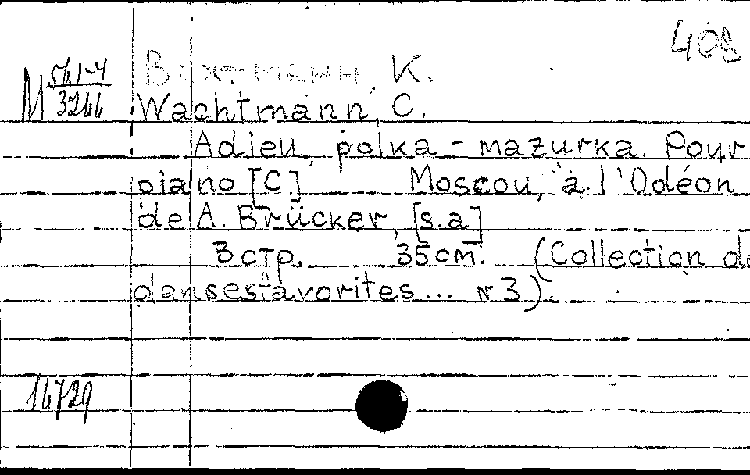 408
М 561-4/3266
Вахтманн, К.
Wachtmann, C.
Adieu, polka - mazurka. Pour
piano [C] Moscou, à l'Odéon
de A. Brücker, [s.a]
3 стр. 35 см. (Collection de
danses favorites... № 3).
16729